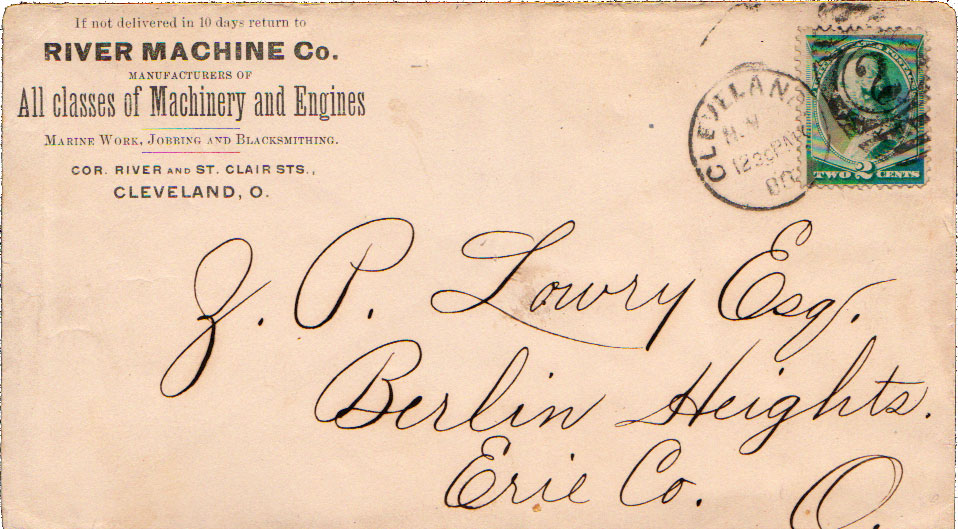 If not delivered in 10 days return to
RIVER MACHINE Co.
MANUFACTURERS OF
All classes of Machinery and Engines
MARINE WORK, JOBBING AND BLACKSMITHING.
COR. RIVER AND ST. CLAIR STS.,
CLEVELAND, O.
CLEVELAND
1230PM
2
TWO 2 CENTS
Z. P. Lowry Esq.
Berlin Heights.
Erie Co. O.